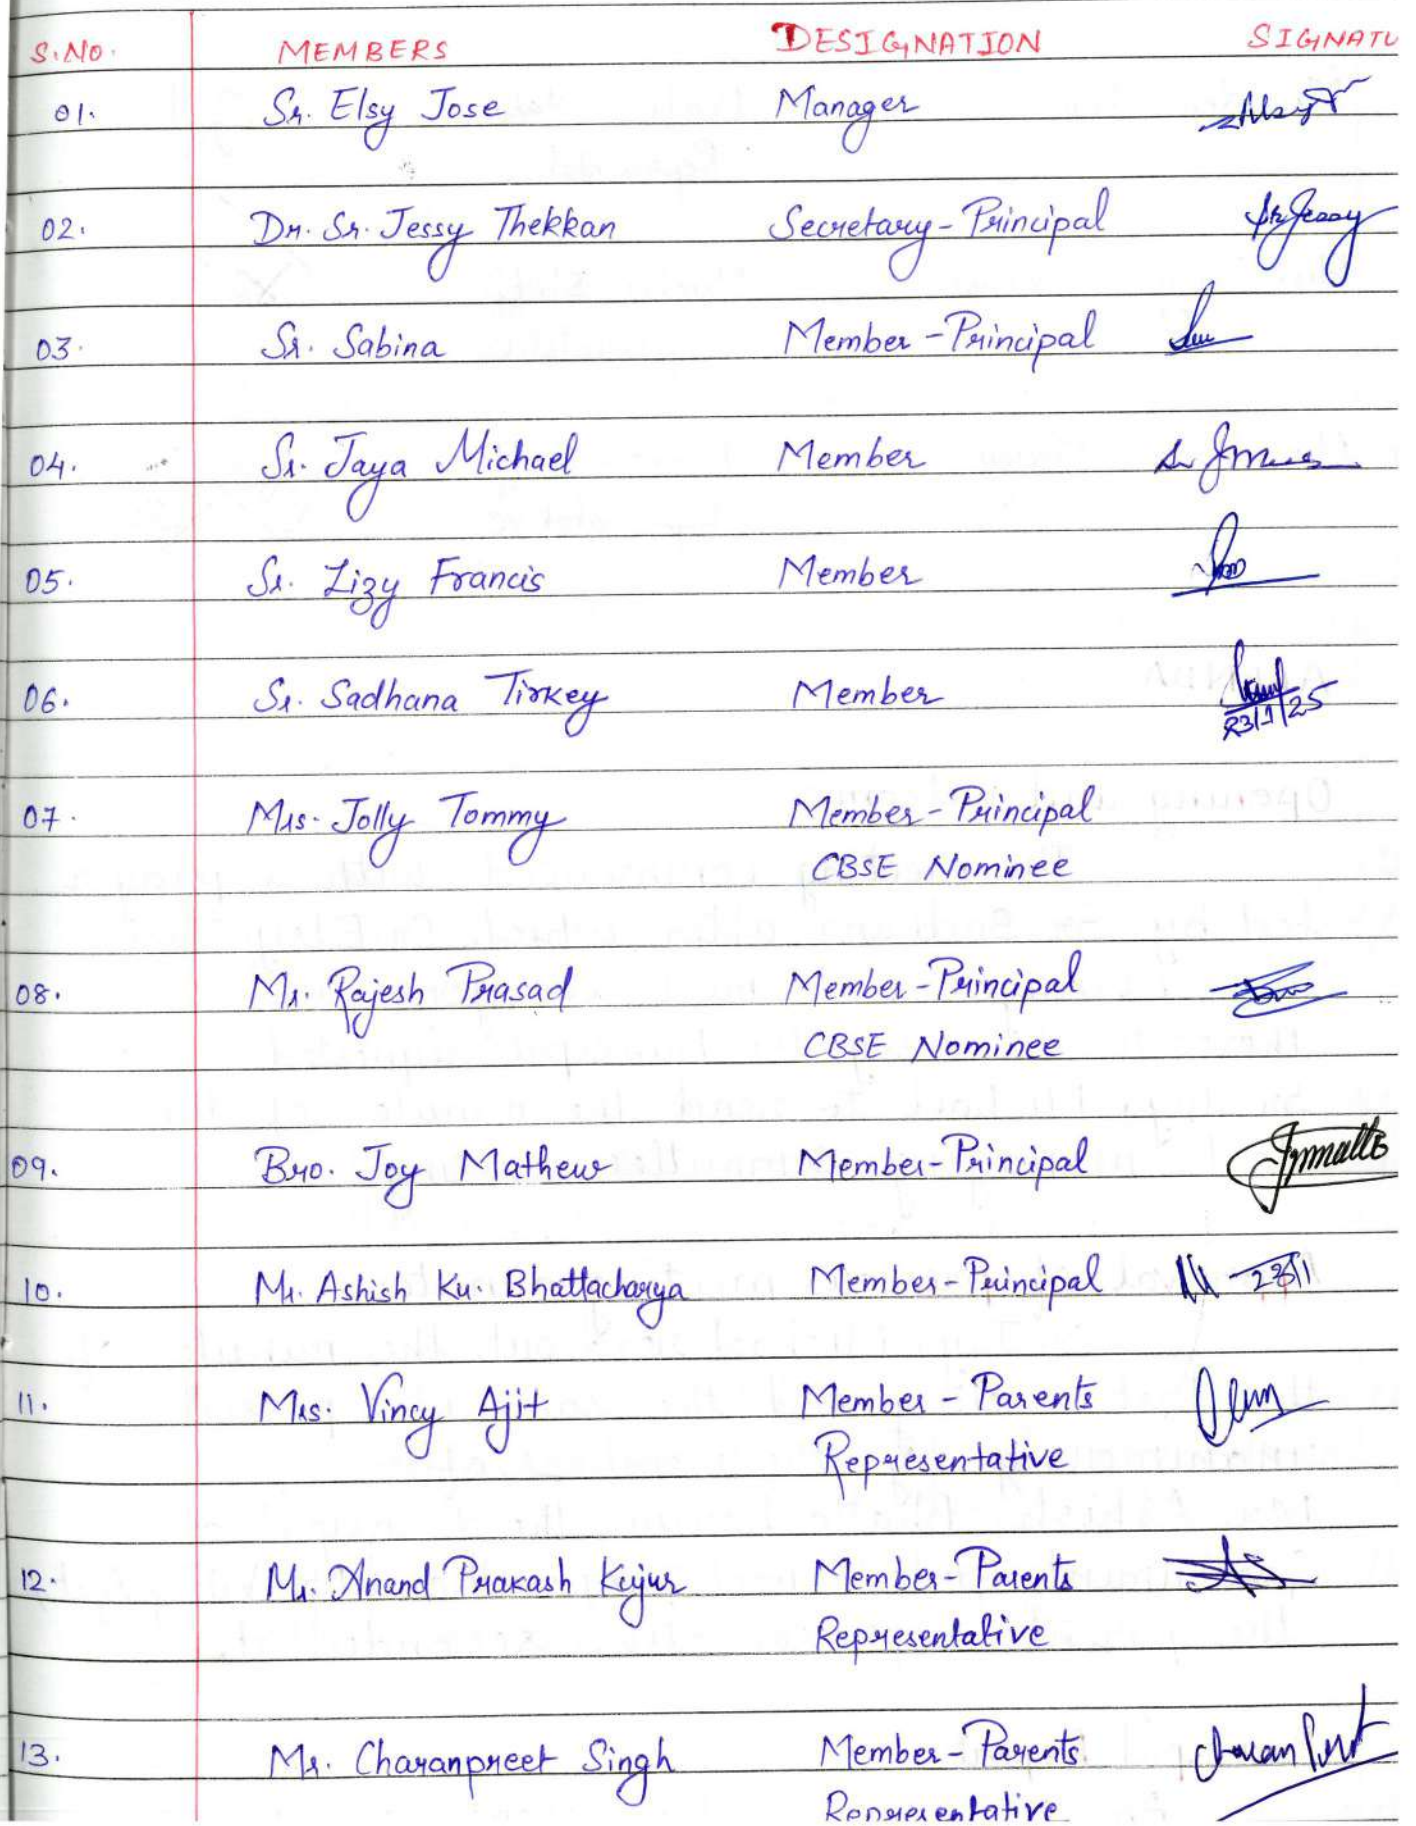 S.No. MEMBERS DESIGNATION SIGNATU
01. Sr. Elsy Jose Manager
02. Dr. Sr. Jessy Thekkan Secretary-Principal Sr Jessy
03. Sr. Sabina Member-Principal
04. Sr. Jaya Michael Member
05. Sr. Lizy Francis Member
06. Sr. Sadhana Tirkey Member
23/1/25
07. Mrs. Jolly Tommy Member-Principal
CBSE Nominee
08. Mr. Rajesh Prasad Member-Principal
CBSE Nominee
09. Bro. Joy Mathew Member-Principal
10. Mr. Ashish Ku. Bhattacharya Member-Principal 23/1
11. Mrs. Vincy Ajit Member-Parents
Representative
12. Mr. Anand Prakash Kujur Member-Parents
Representative
13. Mr. Charanpreet Singh Member-Parents
Representative